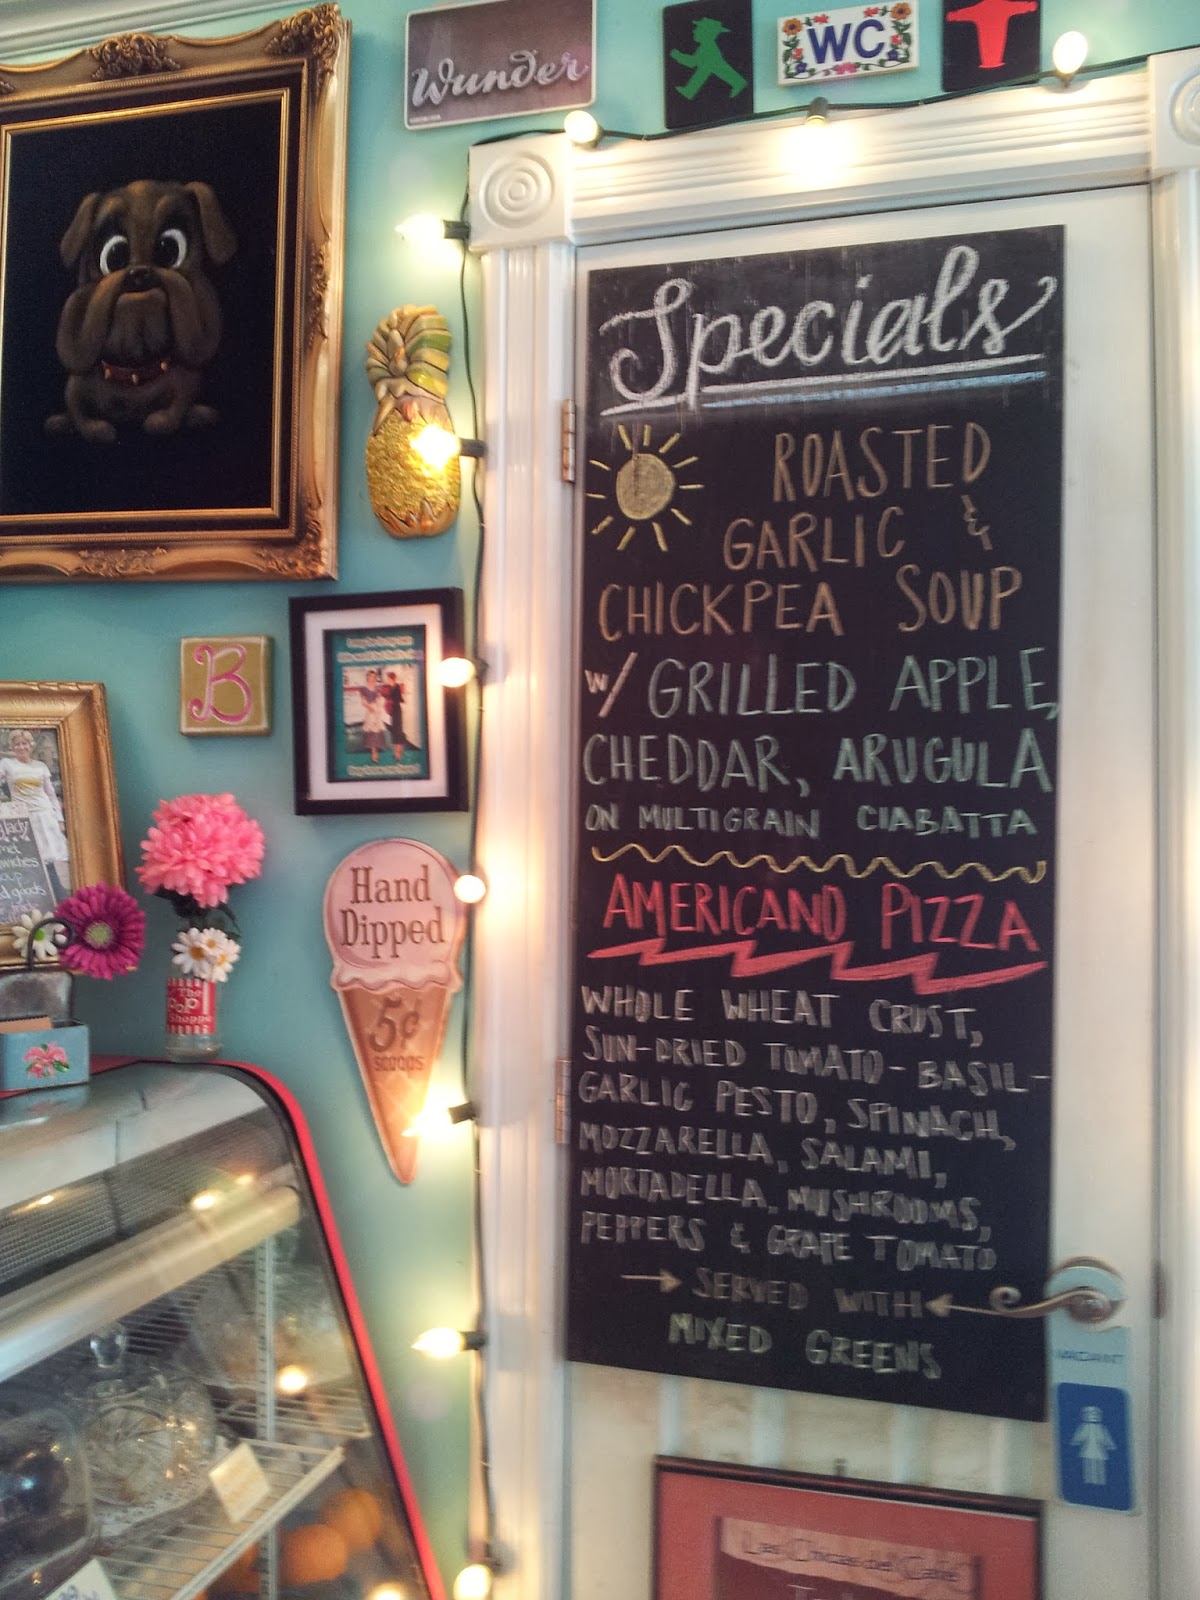 Wunder
WC
Specials
ROASTED
GARLIC &
CHICKPEA SOUP
W/ GRILLED APPLE,
CHEDDAR, ARUGULA
ON MULTIGRAIN CIABATTA
AMERICANO PIZZA
WHOLE WHEAT CRUST,
SUN-DRIED TOMATO-BASIL-
GARLIC PESTO, SPINACH,
MOZZARELLA, SALAMI,
MORTADELLA, MUSHROOMS,
PEPPERS & GRAPE TOMATO
→ SERVED WITH ←
MIXED GREENS
B
Hand
Dipped
5¢
SCOOPS
The
Pop
Shoppe
VACANT